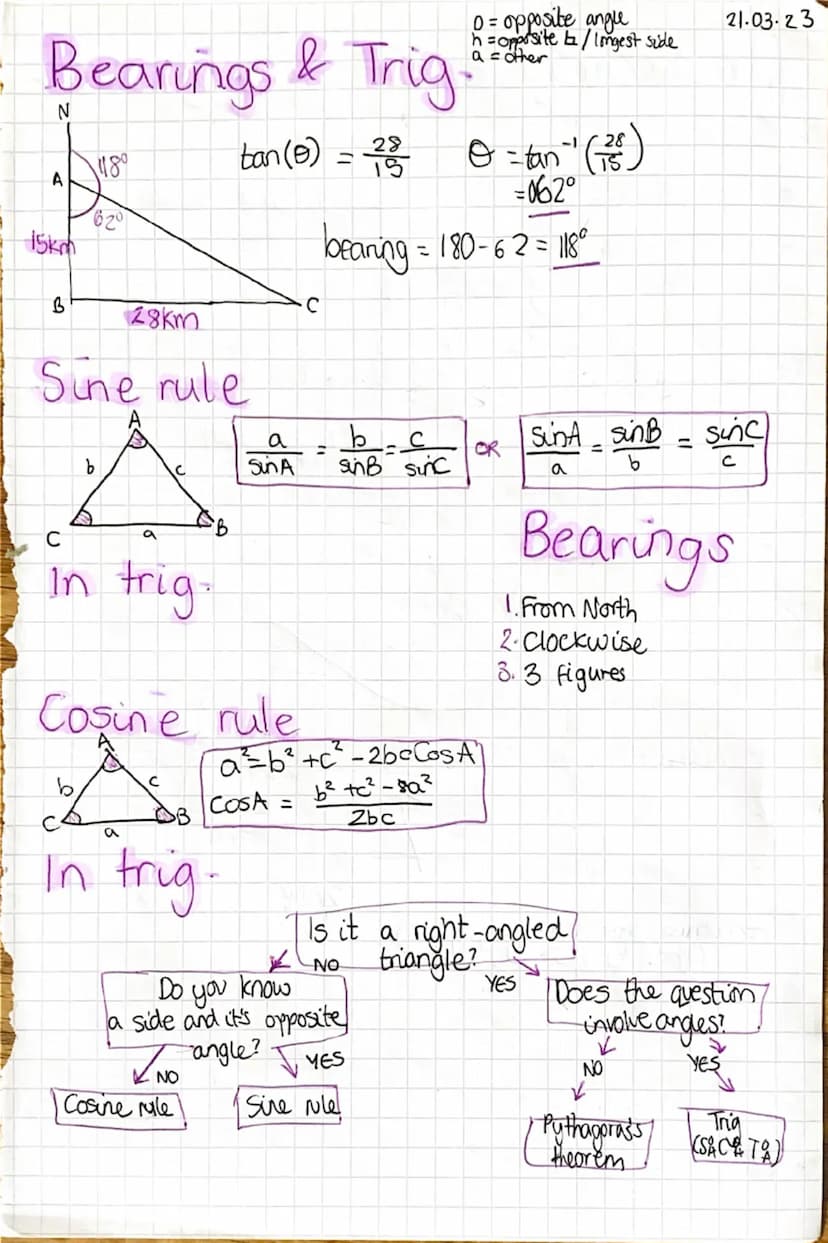 O = opposite angle
h = opposite ⊾ / longest side
a = other
21.03.23
Bearings & Trig.
N
118°
A
62°
15km
B
28km
C
tan(θ) = 28/15
θ = tan⁻¹(28/15)
= 062°
bearing = 180 - 62 = 118°
Sine rule
A
b
c
C
a
B
a/sinA = b/sinB = c/sinC
OR
sinA/a = sinB/b = sinC/c
In trig.
Bearings
1. From North
2. Clockwise
3. 3 figures
Cosine rule
A
b
c
C
a
B
a² = b² + c² - 2bcCosA
CosA = b² + c² - a² / 2bc
In trig.
Is it a right-angled
triangle?
NO
YES
Do you know
a side and it's opposite
angle?
NO
YES
Cosine rule
Sine rule
Does the question
involve angles?
NO
YES
Pythagoras's
theorem
Trig
(SOH CAH TOA)